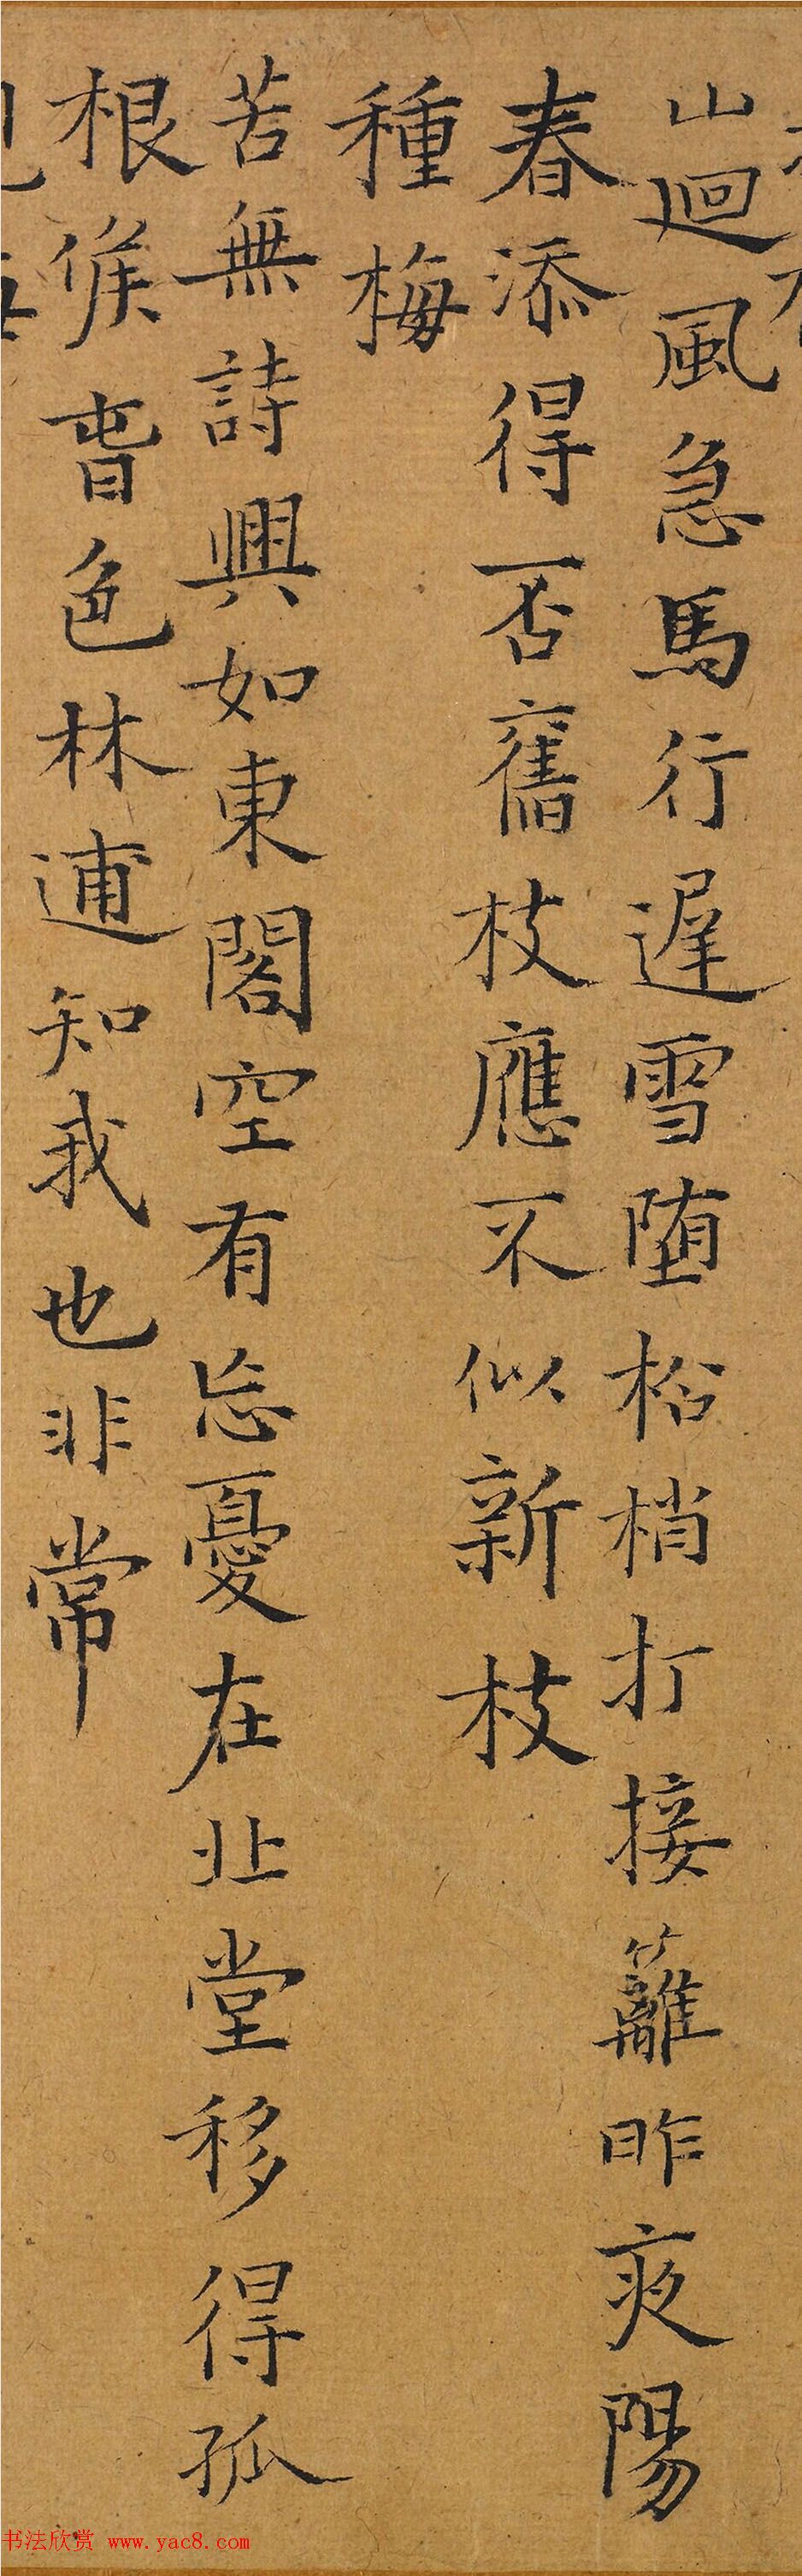 山迴風急馬行遲雪堕松梢打接籬昨夜陽
春添得否舊枝應不似新枝
種梅
苦無詩興如東閣空有忘憂在北堂移得孤
根候春色林逋知我也非常
书法欣赏 www.yac8.com